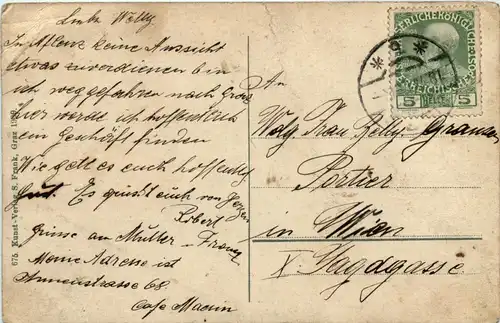 Liebe Nelly
In Aflenz keine Aussicht
etwas zu verdienen bin
ich weggefahren nach Graz
hier werde ich hoffentlich
ein Geschäft finden
Wie geht es euch hoffentlich
gut. Es grüsst euch von
Robert
Grüsse an Mutter – Franz
Meine Adresse ist
Annenstrasse 68
Cafe
An
Frau
Portier
in Wien
X Jagdgasse
675. Kunst-Verlag S. Frank, Graz
5 5